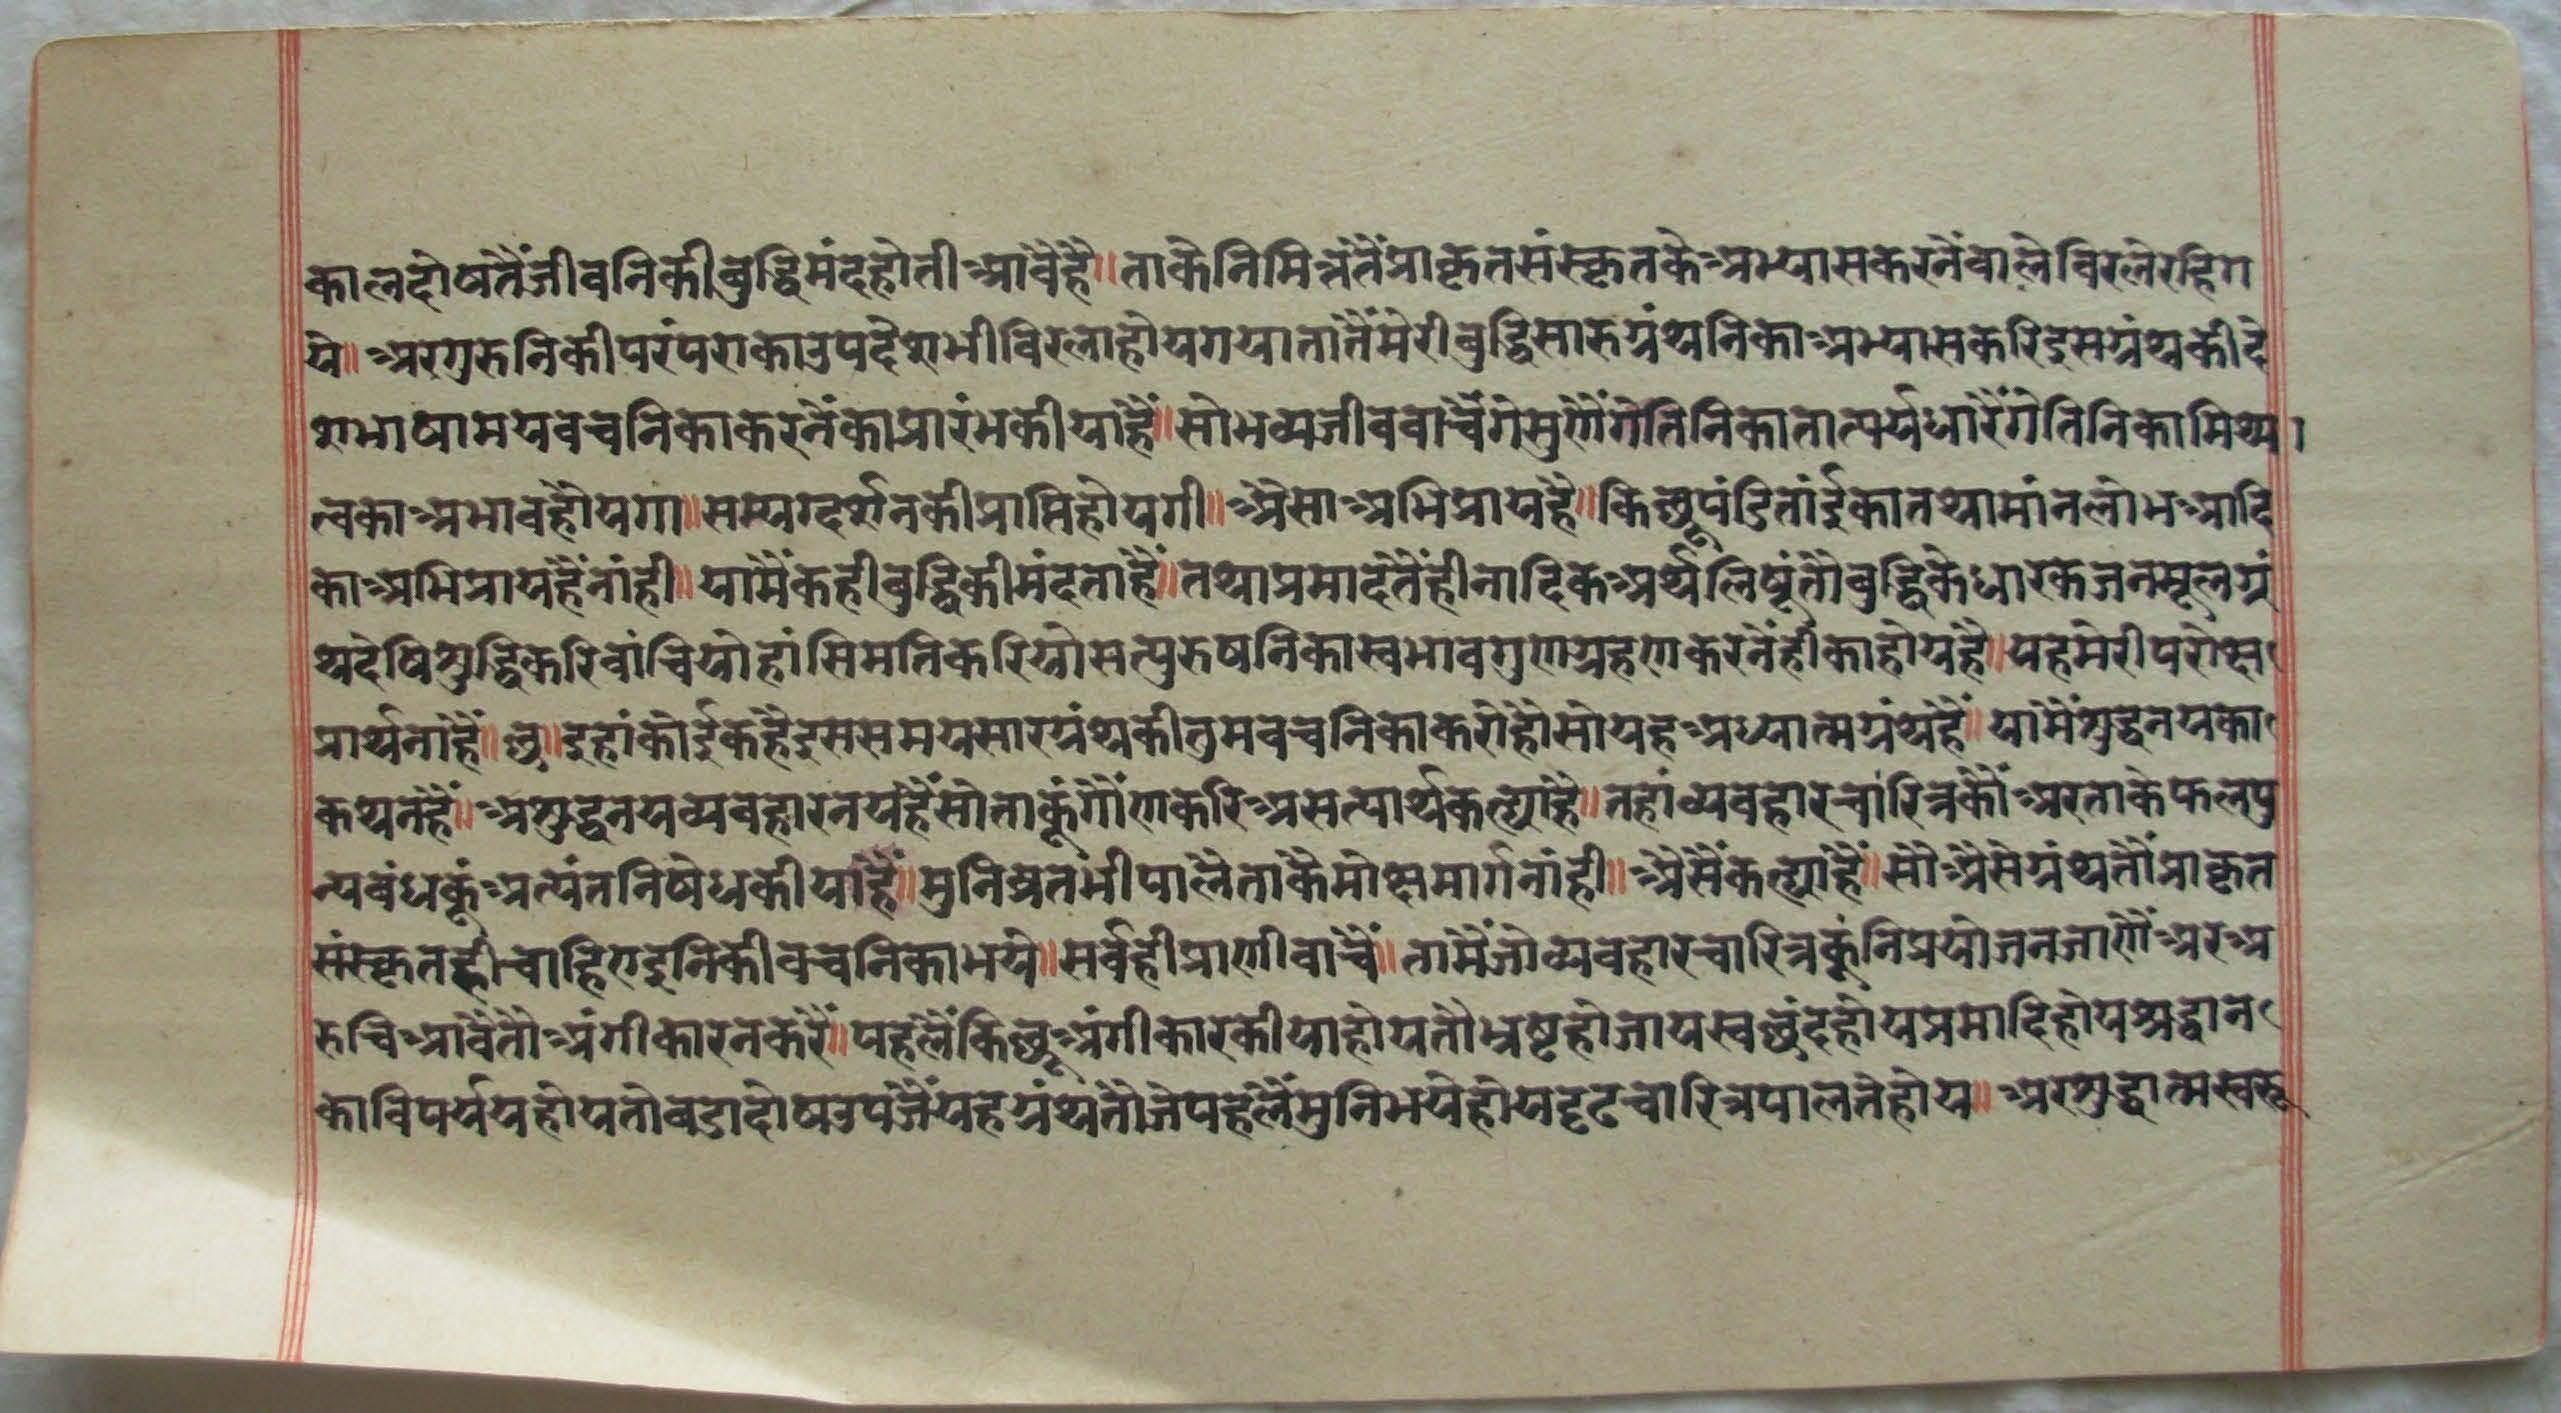 कालदोषतैंजीवनिकीबुद्धिमंदहोतीआवैहै॥ताकेनिमित्ततैंप्राकृतसंस्कृतकेअभ्यासकरनेंवालेविरलेरहिग
ये॥अरगुरुनिकीपरंपराकाउपदेशभीविरलाहोयगयातातैंमेरीबुद्धिसारुग्रंथनिकाअभ्यासकरिइसग्रंथकीदे
शभाषामयवचनिकाकरनेंकाप्रारंभकीयाहैं॥सोभव्यजीववांचैंगेसुणैंगेतिनिकातात्पर्यधारैंगेतिनिकामिथ्या
त्वकाअभावहोयगा॥सम्यग्दर्शनकीप्राप्तिहोयगी॥अैसाअभिप्रायहै॥किछूपंडितांईकातथामांनलोभआदि
काअभिप्रायहैंनांही॥यामैंकहीबुद्धिकीमंदताहैं॥तथाप्रमादतैंहीनादिकअर्थलिषूंतौबुद्धिकेधारकजनमूलग्रं
थदेषिशुद्धिकरिवांचियोहांसिमतिकरियोसत्पुरुषनिकास्वभावगुणग्रहणकरनेंहीकाहोयहै॥यहमेरीपरोक्ष
प्रार्थनाहैं॥छ॥इहांकोईकहैइससमयसारग्रंथकीतुमवचनिकाकरोहोसोयहअध्यात्मग्रंथहैं॥यामैंशुद्धनयका
कथनहैं॥अशुद्धनयव्यवहारनयहैंसोताकूंगौंणकरिअसत्यार्थकह्याहै॥तहांव्यवहारचारित्रकौंअरताकेफलपु
न्यबंधकूंअत्यंतनिषेधकीयाहैं॥मुनिव्रतभीपालैताकैमोक्षमार्गनांही॥अैसैंकह्याहैं॥सोअैसेग्रंथतौप्राकृत
संस्कृतहीचाहिएइनिकीवचनिकाभये॥सर्वहीप्राणीवांचैं॥तामैंजोव्यवहारचारित्रकूंनिप्रयोजनजाणैंअरअ
रुचिआवैतौअंगीकारनकरैं॥पहलैंकिछूअंगीकारकीयाहोयतौभ्रष्टहोजायस्वछंदहोयप्रमादिहोयश्रद्धान
काविपर्ययहोयतोबडादोषउपजैंयहग्रंथतौजेपहलैंमुनिभयेहोयदृढचारित्रपालतेहोय॥अरशुद्धात्मस्वरू